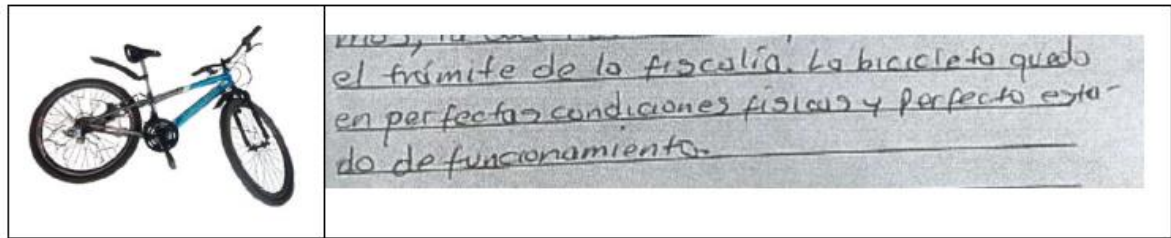 el trámite de la fiscalía. La bicicleta quedo
en perfectas condiciones fisicas y perfecto esta-
do de funcionamiento.